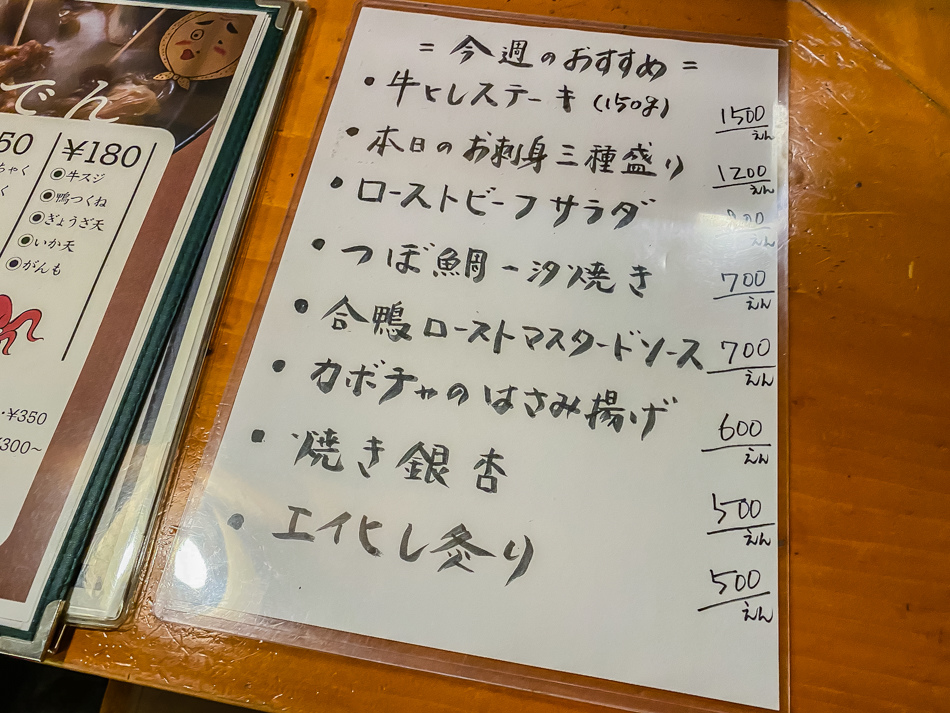 でん
50
ちゃく
く
¥350
¥300~
¥180
◉牛スジ
◉鴨つくね
◉ぎょうざ天
◉いか天
◉がんも
= 今週のおすすめ =
・牛ヒレステーキ(150g) 1500えん
・本日のお刺身三種盛り 1200えん
・ローストビーフサラダ 900えん
・つぼ鯛一汐焼き 700えん
・合鴨ローストマスタードソース 700えん
・カボチャのはさみ揚げ 600えん
・焼き銀杏 500えん
・エイヒレ炙り 500えん